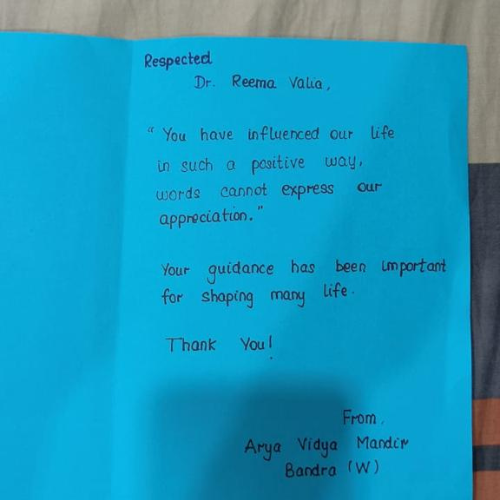 Respected
Dr. Reema Valia,
" You have influenced our life
in such a positive way,
words cannot express our
appreciation."
Your guidance has been important
for shaping many life.
Thank You!
From,
Arya Vidya Mandir
Bandra (W)